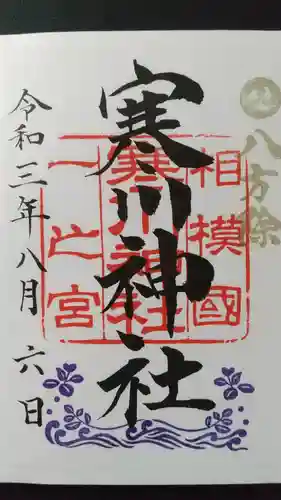 八方除
寒川神社
相模國
寒川神社
一之宮
令和三年八月六日